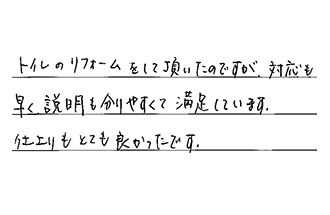 トイレのリフォームをして頂いたのですが、対応も
早く、説明も分りやすくて満足しています。
仕上りもとても良かったです。